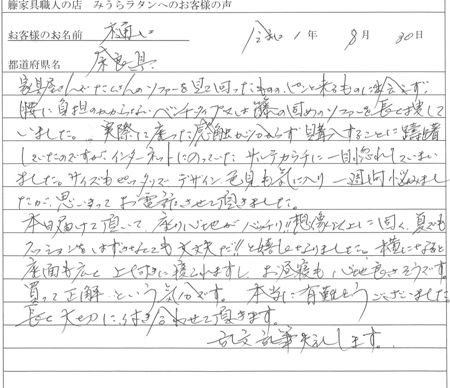 籐家具職人の店　みうらラタンへのお客様の声
お客様のお名前　樋口　令和 1 年 8 月 30 日
都道府県名　奈良県
家具屋さんでたくさんのソファーを見て回ったものの、ピンと来るものに出会えず、
腰に負担のかからないベンチタイプ又は籐の固めのソファーを長く探して
いました。実際に座った感触が分からず購入することに躊躇
していたのですが、インターネットにのっていたサルテカウチに一目惚れしてしまい
ました。サイズもピッタリで、デザイン、色見も気に入り一週間悩みまし
たが、思いきってお電話させて頂きました。
本日届けて頂いて、座り心地がバッチリ!!想像以上に固く、夏でも
クッションをはずさなくても大丈夫だ!!と嬉しくなりました。横になると
座面も広く上向きに寝られますし、お昼寝も心地良さそうです。
買って正解という気分です。本当に有難とうございました。
長く大切にお付き合わせて頂きます。
乱文乱筆失礼します。